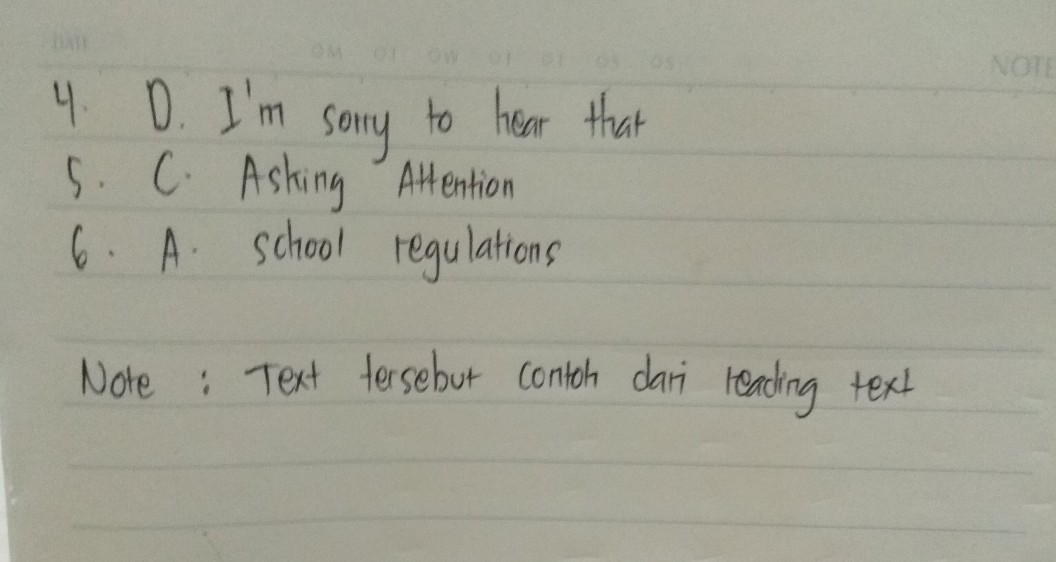 4. D. I'm sorry to hear that
5. C. Asking Attention
6. A. school regulations
Note : Text tersebut contoh dari reading text